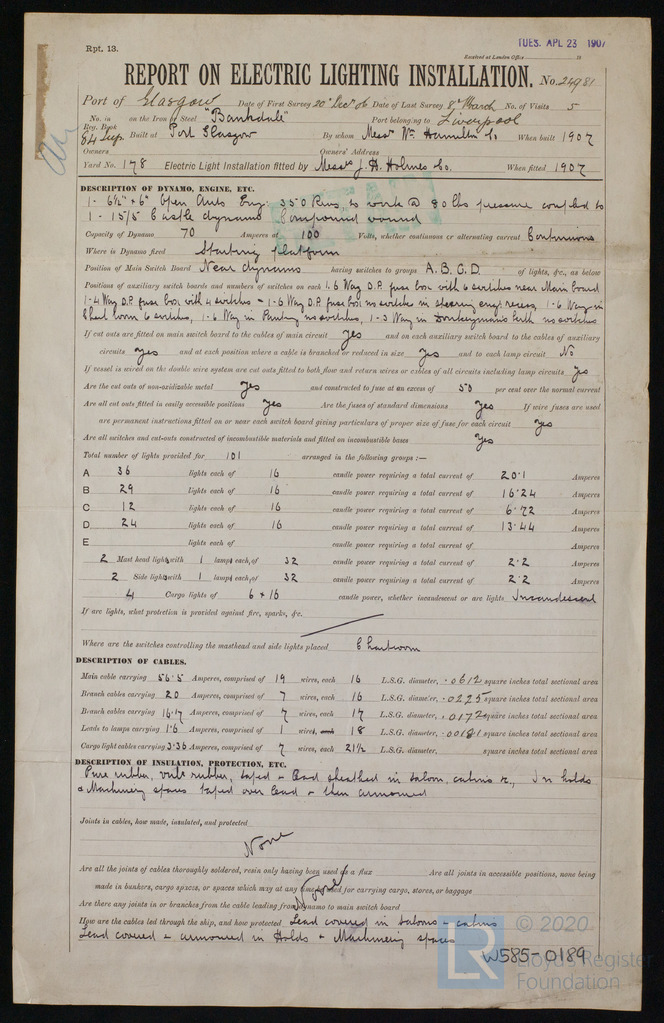 Rpt. 13.
TUES. APL 23 1907
Received at London Office 19
REPORT ON ELECTRIC LIGHTING INSTALLATION. No. 24981
Port of Glasgow Date of First Survey 20th Dec 06 Date of Last Survey 8th March No. of Visits 5
No. in Reg. Book on the Iron or Steel "Banksdale" Port belonging to Liverpool
84 Sup. Built at Port Glasgow By whom Messrs Wm. Hamilton Co. When built 1907
Owners Owners' Address
Yard No. 178 Electric Light Installation fitted by Messrs J. H. Holmes Co. When fitted 1907
DESCRIPTION OF DYNAMO, ENGINE, ETC.
1 - 6½" x 6" Open 350 Revs, to work @ 80 lbs pressure coupled to
1 - 15/5 Castle dynamo Compound wound
Capacity of Dynamo 70 Amperes at 100 Volts, whether continuous or alternating current Continuous
Where is Dynamo fixed Starting platform
Position of Main Switch Board Near dynamo having switches to groups A.B.C.D. of lights, &c., as below
Positions of auxiliary switch boards and numbers of switches on each 1. 6 Way D.P. fuse box with 6 switches near Main board
1-4 Way D.P. fuse box with 4 switches - 1-6 Way D.P. fuse box no switches in steering engr recess, 1-6 Way in
Chart room 6 switches, 1-6 Way in Pantry no switches, 1-3 Way in Donkeyman's berth no switches
If cut outs are fitted on main switch board to the cables of main circuit yes and on each auxiliary switch board to the cables of auxiliary
circuits yes and at each position where a cable is branched or reduced in size yes and to each lamp circuit No
If vessel is wired on the double wire system are cut outs fitted to both flow and return wires or cables of all circuits including lamp circuits yes
Are the cut outs of non-oxidizable metal yes and constructed to fuse at an excess of 50 per cent over the normal current
Are all cut outs fitted in easily accessible positions yes Are the fuses of standard dimensions yes If wire fuses are used
are permanent instructions fitted on or near each switch board giving particulars of proper size of fuse for each circuit yes
Are all switches and cut-outs constructed of incombustible materials and fitted on incombustible bases yes
Total number of lights provided for 101 arranged in the following groups :—
A 36 lights each of 16 candle power requiring a total current of 20.1 Amperes
B 29 lights each of 16 candle power requiring a total current of 16.24 Amperes
C 12 lights each of 16 candle power requiring a total current of 6.72 Amperes
D 24 lights each of 16 candle power requiring a total current of 13.44 Amperes
E lights each of candle power requiring a total current of Amperes
2 Mast head light with 1 lamps each of 32 candle power requiring a total current of 2.2 Amperes
2 Side light with 1 lamps each of 32 candle power requiring a total current of 2.2 Amperes
4 Cargo lights of 6 x 16 candle power, whether incandescent or arc lights Incandescent
If arc lights, what protection is provided against fire, sparks, &c.
Where are the switches controlling the masthead and side lights placed Chartroom
DESCRIPTION OF CABLES.
Main cable carrying 56.5 Amperes, comprised of 19 wires, each 16 L.S.G. diameter, .0612 square inches total sectional area
Branch cables carrying 20 Amperes, comprised of 7 wires, each 16 L.S.G. diameter, .0225 square inches total sectional area
Branch cables carrying 16.17 Amperes, comprised of 7 wires, each 17 L.S.G. diameter, .0172 square inches total sectional area
Leads to lamps carrying 1.6 Amperes, comprised of 1 wires, each 18 L.S.G. diameter, .00181 square inches total sectional area
Cargo light cables carrying 3.36 Amperes, comprised of 7 wires, each 21½ L.S.G. diameter, square inches total sectional area
DESCRIPTION OF INSULATION, PROTECTION, ETC.
Pure rubber, vulc rubber, taped & lead sheathed in saloon, cabins &c, In holds
& Machinery spaces taped over lead & then armoured
Joints in cables, how made, insulated, and protected
None
Are all the joints of cables thoroughly soldered, resin only having been used as a flux Are all joints in accessible positions, none being
made in bunkers, cargo spaces, or spaces which may at any time be used for carrying cargo, stores, or baggage
Are there any joints in or branches from the cable leading from dynamo to main switch board None
How are the cables led through the ship, and how protected Lead covered in saloons & cabins
Lead covered & armoured in Holds & Machinery spaces
W585-0189
LR © 2020
Lloyd's Register
Foundation